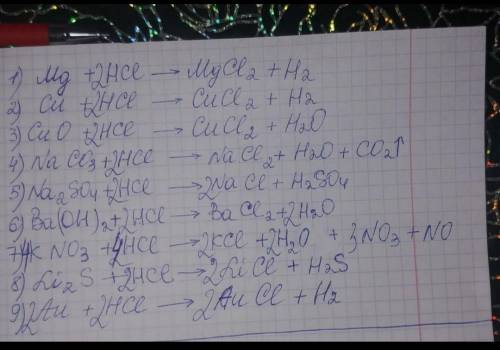 1) Mg + 2HCl → MgCl2 + H2
2) Cu + 2HCl → CuCl2 + H2
3) CuO + 2HCl → CuCl2 + H2O
4) NaCO3 + 2HCl → NaCl2 + H2O + CO2↑
5) Na2SO4 + 2HCl → 2NaCl + H2SO4
6) Ba(OH)2 + 2HCl → BaCl2 + 2H2O
7) 4KNO3 + 4HCl → 2KCl + 2H2O + 3NO3 + NO
8) Li2S + 2HCl → 2LiCl + H2S
9) 2Au + 2HCl → 2AuCl + H2